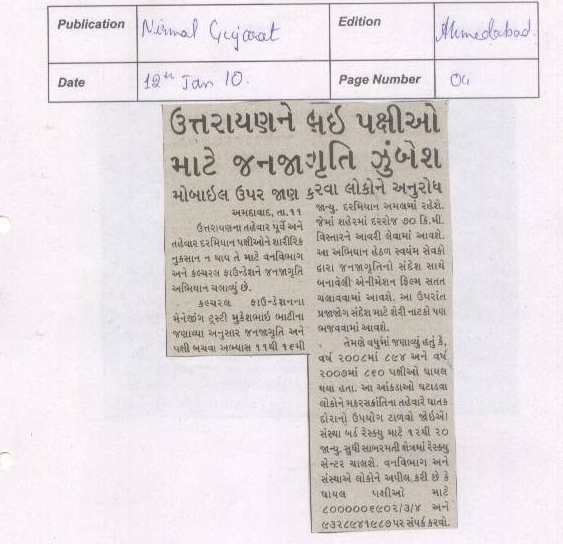 Publication Nirmal Gujarat Edition Ahmedabad.
Date 12th Jan 10. Page Number 04
ઉત્તરાયણને લઇ પક્ષીઓ
માટે જનજાગૃતિ ઝુંબેશ
મોબાઇલ ઉપર જાણ કરવા લોકોને અનુરોધ
અમદાવાદ, તા.૧૧
ઉત્તરાયણના તહેવાર પૂર્વે અને
તહેવાર દરમિયાન પક્ષીઓને શારીરિક
નુકસાન ન થાય તે માટે વનવિભાગ
અને કલ્ચરલ ફાઉન્ડેશને જનજાગૃતિ
અભિયાન ચલાવ્યું છે.
કલ્ચરલ ફાઉન્ડેશનના
મેનેજીંગ ટ્રસ્ટી મુકેશભાઇ ભાટીના
જણાવ્યા અનુસાર જનજાગૃતિ અને
પક્ષી બચવા અભ્યાસ ૧૧થી ૧૬મી
જાન્યુ. દરમિયાન અમલમાં રહેશે.
જેમાં શહેરમાં દરરોજ ૭૦ કિ.મી.
વિસ્તારને આવરી લેવામાં આવશે.
આ અભિયાન હેઠળ સ્વયંમ સેવકો
દ્વારા જનજાગૃતિનો સંદેશ સાથે
બનાવેલી એનીમેશન ફિલ્મ સતત
ચલાવવામાં આવશે. આ ઉપરાંત
પ્રજાજોગ સંદેશ માટે શેરી નાટકો પણ
ભજવવામાં આવશે.
તેમણે વધુમાં જણાવ્યું હતું કે,
વર્ષ ૨૦૦૮માં ૮૯૪ અને વર્ષ
૨૦૦૭માં ૮૬૦ પક્ષીઓ ઘાયલ
થયા હતા. આ આંકડાઓ ઘટાડવા
લોકોને મકરસક્રાંતિના તહેવારે ઘાતક
દોરાનો ઉપયોગ ટાળવો જોઇએ.
સંસ્થા બર્ડ રેસ્ક્યુ માટે ૧૨થી ૨૦
જાન્યુ. સુધી સાબરમતી ક્ષેત્રમાં રેસ્ક્યુ
સેન્ટર ચાલશે. વનવિભાગ અને
સંસ્થાએ લોકોને અપીલ કરી છે કે
ઘાયલ પક્ષીઓ માટે
૮૦૦૦૦૦૬૯૦૨/૩/૪ અને
૯૩૨૮૯૪૧૯૮૭ પર સંપર્ક કરવો.